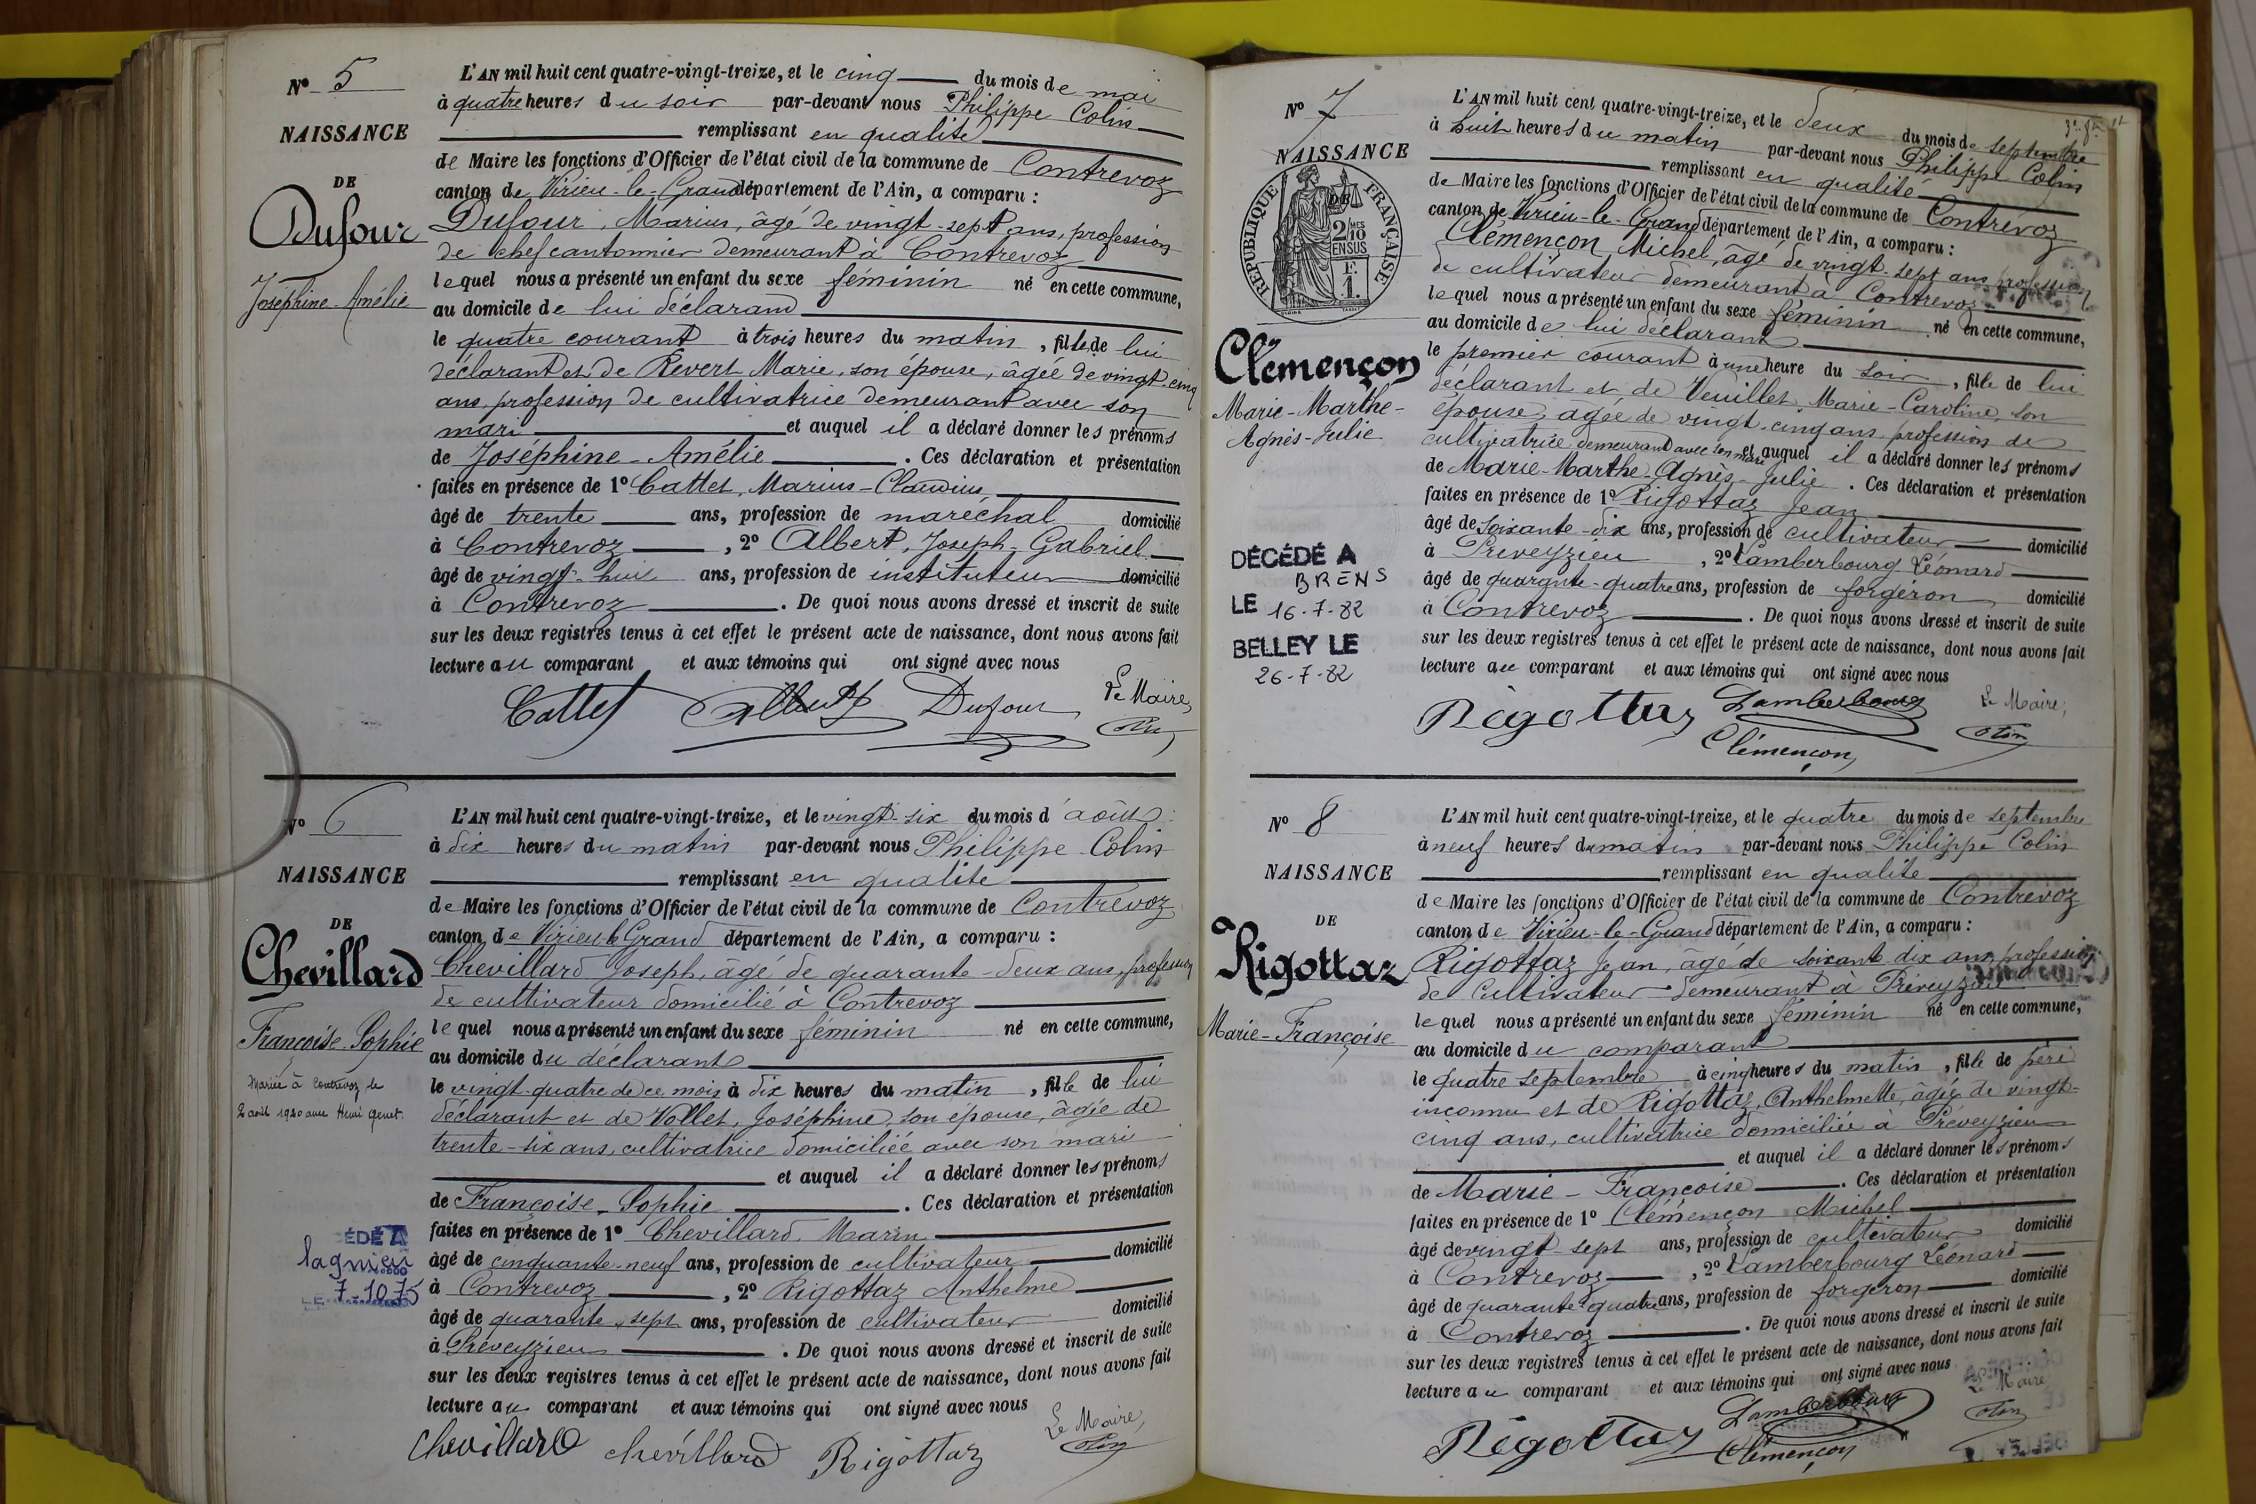 Nº 5
NAISSANCE
DE
Dufour
Joséphine-Amélie
L'AN mil huit cent quatre-vingt-treize, et le cinq du mois de mai
à quatre heures du soir par-devant nous Philippe Colin
remplissant en qualité
de Maire les fonctions d'Officier de l'état civil de la commune de Contrevoz
canton de Virieu-le-Grand département de l'Ain, a comparu :
Dufour, Marius, âgé de vingt-sept ans, profession
de chef cantonnier demeurant à Contrevoz
lequel nous a présenté un enfant du sexe féminin né en cette commune,
au domicile de lui déclarant
le quatre courant à trois heures du matin, fille de lui
déclarant et de Revert Marie, son épouse, âgée de vingt cinq
ans, profession de cultivatrice demeurant avec son
mari et auquel il a déclaré donner les prénoms
de Joséphine-Amélie. Ces déclaration et présentation
faites en présence de 1º Cattet, Marius-Claudius,
âgé de trente ans, profession de maréchal domicilié
à Contrevoz, 2º Albert, Joseph-Gabriel
âgé de vingt-huit ans, profession de instituteur domicilié
à Contrevoz. De quoi nous avons dressé et inscrit de suite
sur les deux registres tenus à cet effet le présent acte de naissance, dont nous avons fait
lecture au comparant et aux témoins qui ont signé avec nous
Cattet Albert Dufour Le Maire,
Colin
Nº 6
NAISSANCE
DE
Chevillard
Françoise-Sophie
Mariée à Contrevoz le
2 août 1920 avec Henri Genet.
ÉDÉ A
Lagnieu
LE 7-10 75
L'AN mil huit cent quatre-vingt-treize, et le vingt-six du mois d'août
à dix heures du matin par-devant nous Philippe Colin
remplissant en qualité
de Maire les fonctions d'Officier de l'état civil de la commune de Contrevoz
canton de Virieu-le-Grand département de l'Ain, a comparu :
Chevillard Joseph, âgé de quarante-deux ans, profession
de cultivateur domicilié à Contrevoz
lequel nous a présenté un enfant du sexe féminin né en cette commune,
au domicile du déclarant
le vingt-quatre de ce mois à dix heures du matin, fille de lui
déclarant et de Vollet, Joséphine, son épouse, âgée de
trente-six ans, cultivatrice domiciliée avec son mari
et auquel il a déclaré donner les prénoms
de Françoise-Sophie. Ces déclaration et présentation
faites en présence de 1º Chevillard Marin
âgé de cinquante-neuf ans, profession de cultivateur domicilié
à Contrevoz, 2º Rigottaz Anthelme
âgé de quarante-sept ans, profession de cultivateur domicilié
à Préveyzieu. De quoi nous avons dressé et inscrit de suite
sur les deux registres tenus à cet effet le présent acte de naissance, dont nous avons fait
lecture au comparant et aux témoins qui ont signé avec nous
Chevillard Chevillard Rigottaz Le Maire,
Colin
Nº 7
NAISSANCE
DE
RÉPUBLIQUE FRANÇAISE
2/10 MES
EN SUS
F.
1.
Clémençon
Marie-Marthe-
Agnès-Julie
DÉCÉDÉ A
BRENS
LE 16-7-82
BELLEY LE
26-7-82
L'AN mil huit cent quatre-vingt-treize, et le deux du mois de septembre
à huit heures du matin par-devant nous Philippe Colin
remplissant en qualité
de Maire les fonctions d'Officier de l'état civil de la commune de Contrevoz
canton de Virieu-le-Grand département de l'Ain, a comparu :
Clémençon Michel, âgé de vingt-sept ans, profession
de cultivateur demeurant à Contrevoz
lequel nous a présenté un enfant du sexe féminin né en cette commune,
au domicile de lui déclarant
le premier courant à une heure du soir, fille de lui
déclarant et de Veuillet Marie-Caroline, son
épouse, âgée de vingt-cinq ans profession de
cultivatrice demeurant avec son mari et auquel il a déclaré donner les prénoms
de Marie-Marthe-Agnès-Julie. Ces déclaration et présentation
faites en présence de 1º Rigottaz Jean
âgé de soixante-dix ans, profession de cultivateur domicilié
à Préveyzieu, 2º Lamberbourg Léonard
âgé de quarante-quatre ans, profession de forgeron domicilié
à Contrevoz. De quoi nous avons dressé et inscrit de suite
sur les deux registres tenus à cet effet le présent acte de naissance, dont nous avons fait
lecture au comparant et aux témoins qui ont signé avec nous
Rigottaz Lamberbourg Le Maire,
Clémençon Colin
Nº 8
NAISSANCE
DE
Rigottaz
Marie-Françoise
L'AN mil huit cent quatre-vingt-treize, et le quatre du mois de septembre
à neuf heures du matin par-devant nous Philippe Colin
remplissant en qualité
de Maire les fonctions d'Officier de l'état civil de la commune de Contrevoz
canton de Virieu-le-Grand département de l'Ain, a comparu :
Rigottaz Jean, âgé de soixante dix ans, profession
de cultivateur demeurant à Préveyzieu
lequel nous a présenté un enfant du sexe féminin né en cette commune,
au domicile du comparant
le quatre septembre à cinq heures du matin, fille de père
inconnu et de Rigottaz, Anthelmette, âgée de vingt-
cinq ans, cultivatrice domiciliée à Préveyzieu
et auquel il a déclaré donner les prénoms
de Marie-Françoise. Ces déclaration et présentation
faites en présence de 1º Clémençon Michel
âgé de vingt-sept ans, profession de cultivateur domicilié
à Contrevoz, 2º Lamberbourg Léonard
âgé de quarante quatre ans, profession de forgeron domicilié
à Contrevoz. De quoi nous avons dressé et inscrit de suite
sur les deux registres tenus à cet effet le présent acte de naissance, dont nous avons fait
lecture au comparant et aux témoins qui ont signé avec nous
Rigottaz Lamberbourg Le Maire
Clémençon Colin